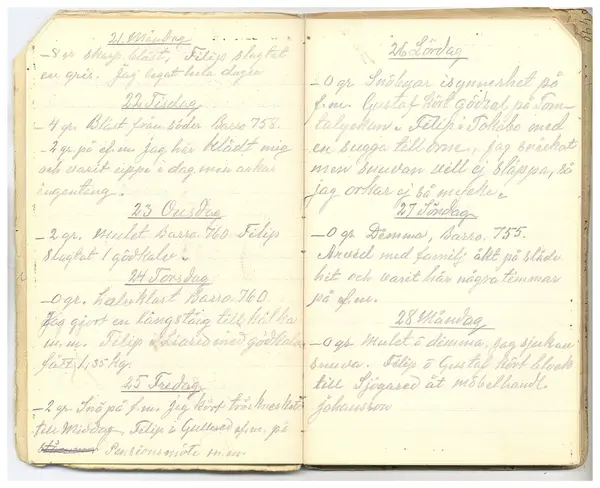 21 Måndag
-8 gr skarp blåst, Filip slagtat
en gris. Jag legat hela dagen
22 Tisdag
-4 gr. Blåst från söder Baro 758.
-2 gr på e.m. Jag har klädt mig
och varit uppe i dag men orkar
ingenting.
23 Onsdag
-2 gr. Mulet Baro 760 Filip
slagtat 1 gödkalv.
24 Torsdag
-0 gr. halvklart Baro 760.
Jag gjort en långstäig till
m.m. Filip med gödkalv
fått 1,35 kg.
25 Fredag
-2 gr Snö på f.m. Jag kört
till Middag, Filip i Gullered e.m. på
Pensionsmöte m.m.
26 Lördag
-0 gr Snöbyar isynnerhet på
f.m. Gustaf kört gödsel på Tom-
talyckan. Filip i Tokåbo med
en sugga till orne, jag snickat
men snuvan vill ej släppa, så
jag orkar ej så mycke.
27 Söndag
-0 gr Dimma, Baro. 755.
Arvid med familj åkt på släde
hit och varit här några timmar
på e.m.
28 Måndag
-0 gr Mulet o dimma, Jag sjuk av
snuva. Filip o Gustaf kört
till åt möbelhandl.
Johansson